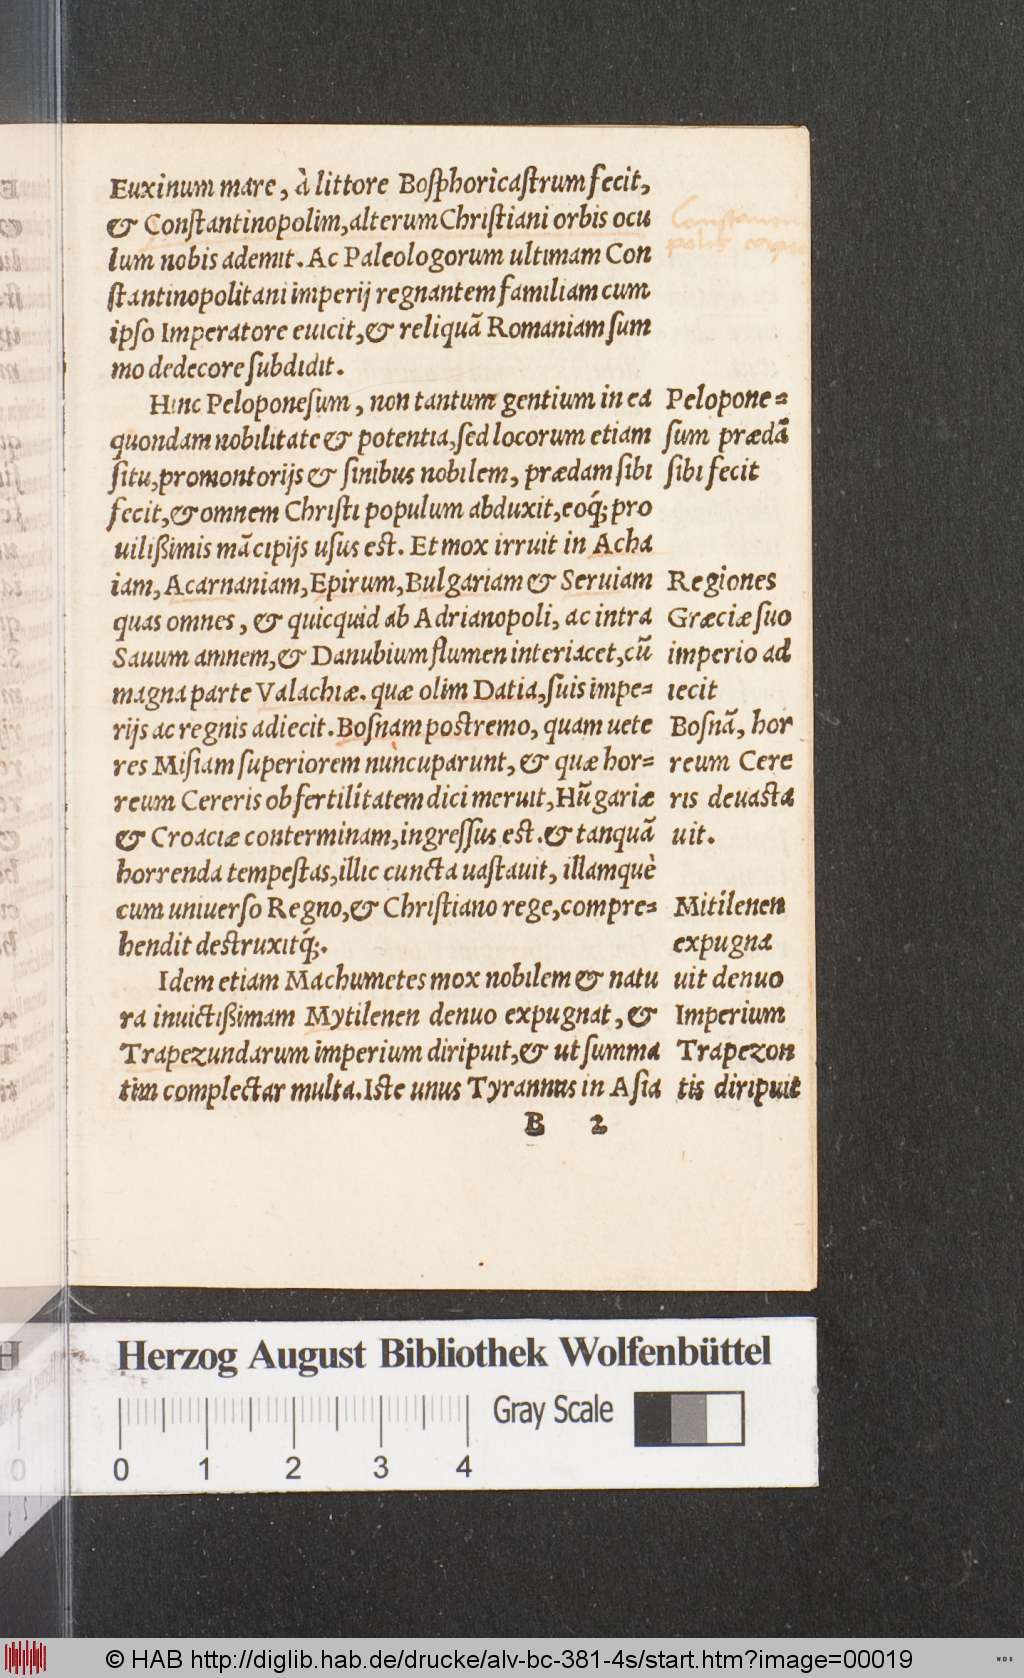 Euxinum mare, à littore Bosphoricastrum fecit,
& Constantinopolim, alterum Christiani orbis ocu
lum nobis ademit. Ac Paleologorum ultimam Con
stantinopolitani imperij regnantem familiam cum
ipso Imperatore euicit, & reliquā Romaniam sum
mo dedecore subdidit.
Hinc Peloponesum, non tantum gentium in ea
quondam nobilitate & potentia, sed locorum etiam
situ, promontorijs & sinibus nobilem, prædam sibi
fecit, & omnem Christi populum abduxit, eoq́; pro
uilißimis mācipijs usus est. Et mox irruit in Acha
iam, Acarnaniam, Epirum, Bulgariam & Seruiam
quas omnes, & quicquid ab Adrianopoli, ac intra
Sauum amnem, & Danubium flumen interiacet, cū
magna parte Valachiæ. quæ olim Datia, suis impe=
rijs ac regnis adiecit. Bosnam postremo, quam uete
res Misiam superiorem nuncuparunt, & quæ hor=
reum Cereris ob fertilitatem dici meruit, Hūgariæ
& Croaciæ conterminam, ingressus est. & tanquā
horrenda tempestas, illic cuncta uastauit, illamquè
cum uniuerso Regno, & Christiano rege, compre=
hendit destruxitq́;.
Idem etiam Machumetes mox nobilem & natu
ra inuictißimam Mytilenen denuo expugnat, &
Trapezundarum imperium diripuit, & ut summa
tim complectar multa. Iste unus Tyrannus in Asia
B 2
Pelopone=
sum prædā
sibi fecit
Regiones
Græciæ suo
imperio ad
iecit
Bosnā, hor
reum Cere
ris deuasta
uit.
Mitilenen
expugna
uit denuo
Imperium
Trapezon
tis diripuit
Herzog August Bibliothek Wolfenbüttel
Gray Scale
0 1 2 3 4
© HAB http://diglib.hab.de/drucke/alv-bc-381-4s/start.htm?image=00019